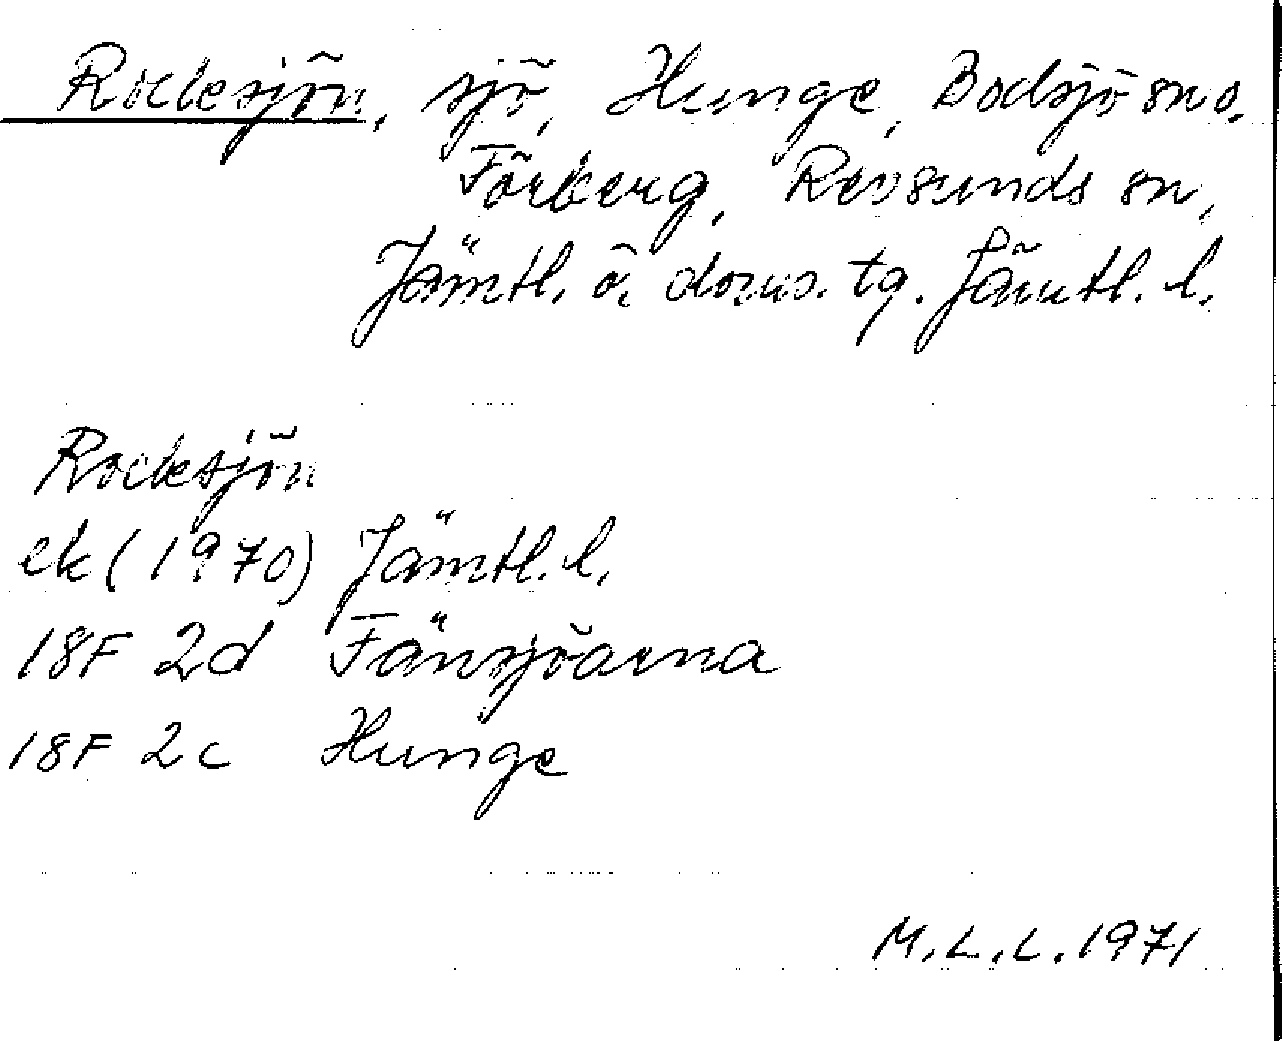 Rocksjön, sjö, Hunge, Bodsjö sn o.
Förberg, Revsunds sn,
Jämtl. ö. doms. tg. Jämtl. l.
Rocksjön
ek (1970) Jämtl. l.
18F 2d Fänsjöarna
18F 2c Hunge
M.L.L. 1971